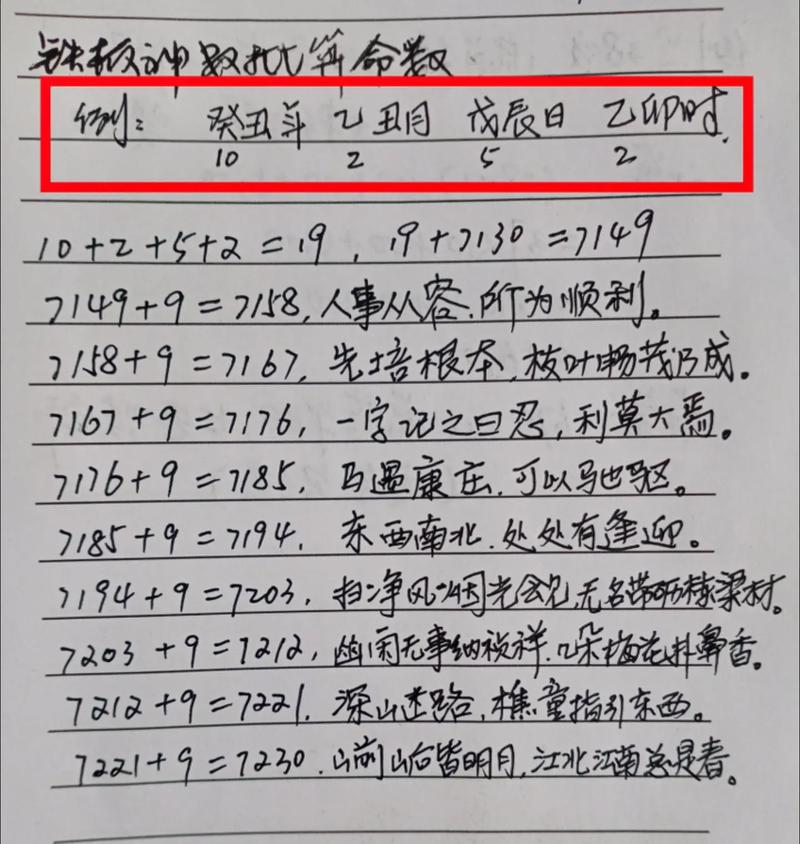 铁板神数批算命数
例: 癸丑年 乙丑月 戊辰日 乙卯时.
10 2 5 2
10+2+5+2=19, 19+7130=7149
7149+9=7158,人事从容.所为顺利。
7158+9=7167, 先培根本,枝叶畅茂乃成。
7167+9=7176,一字记之曰忍,利莫大焉。
7176+9=7185, 马遇康庄,可以驰驱。
7185+9=7194. 东西南北.处处有逢迎。
7194+9=7203, 扫净风烟光会见,无名带砺栋梁材。
7203+9=7212,幽闲无事纳祯祥.朵梅花扑鼻香。
7212+9=7221. 深山迷路,樵童指引东西。
7221+9=7230.山前山后皆明月,江北江南总是春。